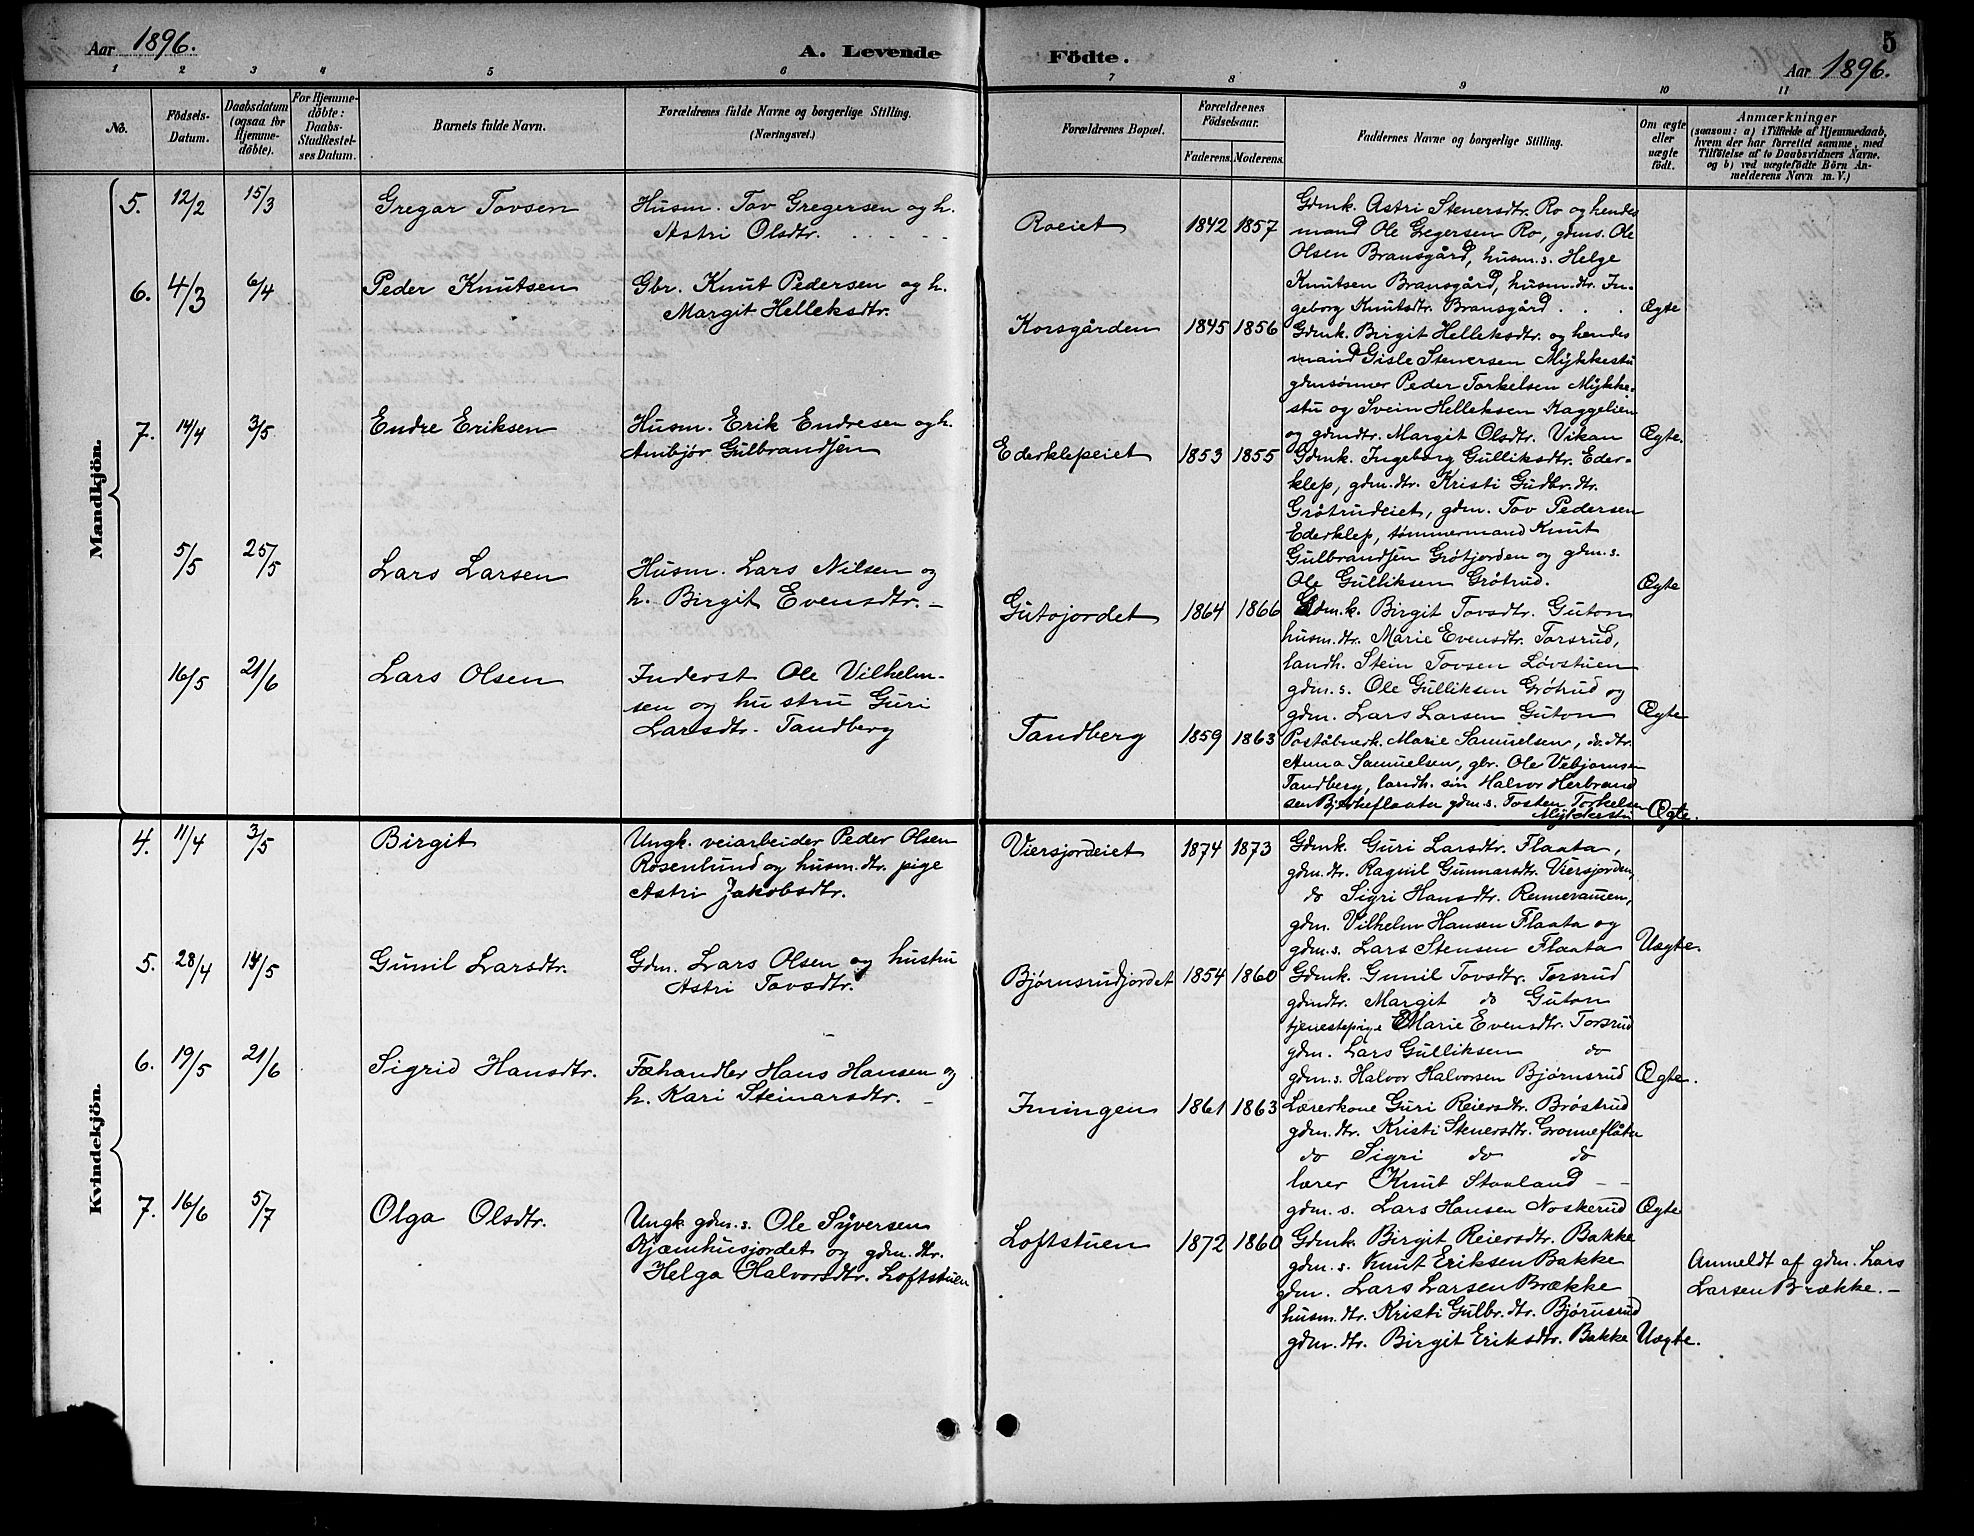 Aar 1896.
A. Levende Födte.
5
Aar 1896.
1 2 3 4 5 6 7 8 9 10 11
No.
Födsels-
Datum.
Daabsdatum
(ogsaa for
Hjemme-
döbte).
For Hjemme-
döbte:
Daabs-
Stadfæstel-
ses Datum.
Barnets fulde Navn.
Forældrenes fulde Navne og borgerlige Stilling.
(Næringsvei.)
Forældrenes Bopæl.
Forældrenes
Födselsaar.
Faderens. Moderens.
Faddernes Navne og borgerlige Stilling.
Om ægte
eller
uægte
födt.
Anmærkninger
(saasom: a) i Tilfælde af Hjemmedaab,
hvem der har forrettet samme, med
Tilföielse af to Daabsvidners Navne.
og b) ved uægtefödte Börn An-
melderens Navn m. V.)
Mandkjön.
5. 12/2 15/3 Gregar Tovsen
Husm. Tov Gregersen og h.
Astri Olsdtr.
Roeiet 1842 1857
Gdmk. Astri Stenersdtr. Ro og hendes
mand Ole Gregersen Ro, gdms. Ole
Olsen Bransgård, husm.s. Helge
Knutsen Bransgård, husm.dtr. In-
geborg Knutsdtr. Bransgård . . . Ægte
6. 4/3 6/4 Peder Knutsen
Gbr. Knut Pedersen og h.
Margit Helleksdtr.
Korsgården 1845 1856
Gdmk. Birgit Helleksdtr. og hendes
mand Gisle Stenersen Mykkestu
gdmsønner Peder Torkelsen Mykke-
stu og Svein Helleksen Kaggelien
og gdmdtr. Margit Olsdtr. Vikan Ægte.
7. 14/4 3/5 Endre Eriksen
Husm. Erik Endresen og h.
Anbjør Gulbrandsen
Ederklepeiet 1853 1855
Gdmk. Ingeborg Gulliksdtr. Eder-
klep, gdm.dtr. Kristi Gudbr.dtr.
Grøtrudeiet, gdm. Tov Pedersen
Ederklep, tømmermand Knut
Gulbrandsen Grøtjorden og gdm.s.
Ole Gulliksen Grøtrud. Ægte
5/5 25/5 Lars Larsen
Husm. Lars Nilsen og
h. Birgit Evensdtr. –
Gutojordet 1864 1866
Gdm.k. Birgit Tovsdtr. Guton
husm.dtr. Marie Evensdtr. Torsrud,
landh. Stein Tovsen Løvstuen
gdm.s. Ole Gulliksen Grøtrud og
gdm. Lars Larsen Guton Ægte
16/5 21/6 Lars Olsen
Inderst Ole Vilhelm-
sen og hustru Guri
Larsdtr. Tandberg
Tandberg 1859 1863
Poståbnerk. Marie Samuelsen, do. dtr.
Anna Samuelsen, gbr. Ole Vebjørnsen
Tandberg, landh. sin Halvor Herbrand
sen Bjerkeflaata gdm.s. Tosten Torkelsen
Ægte.
Kvindekjön.
4. 11/4 3/5 Birgit
Ungk. veiarbeider Peder Olsen
Rosenlund og husm.dtr. pige
Astri Jakobsdtr.
Viersjordeiet 1874 1873
Gdmk. Guri Larsdtr. Flaata,
gdm.dtr. Ragnil Gunnarsdtr. Viersjorden,
do Sigri Hansdtr. Rennerauen,
gdm. Vilhelm Hansen Flaata og
gdm.s. Lars Stensen Flaata Uægte.
5. 28/4 14/5 Gunil Larsdtr.
Gdm. Lars Olsen og hustru
Astri Tovsdtr.
Bjørnsrudjordet 1854 1860
Gdmk. Gunil Tovsdtr. Torsrud
gdmdtr. Margit do Guton
tjenestepige Marie Evensdtr. Torsrud
gdm. Lars Gulliksen do
gdm.s. Halvor Halvorsen Bjørnsrud Ægte.
6. 19/5 21/6 Sigrid Hansdtr.
Fæhandler Hans Hansen og
h. Kari Steinarsdtr. –
Iningen 1861 1863
Lærerkone Guri Reiersdtr. Brøstrud
gdm.dtr. Kristi Stenersdtr. Grønneflåta
do Sigri do do
lærer Knut Staaland – –
gdm.s. Lars Hansen Noskerud Ægte
7. 16/6 5/7 Olga Olsdtr.
Ungk. gdm.s. Ole Syversen
Kjæmhusjordet og gdm.dtr.
Helga Halvorsdtr. Loftstuen
Loftstuen 1872 1860
Gdmk. Birgit Reiersdtr. Bakke
gdm.s. Knut Eriksen Bakke
gdm. Lars Larsen Brække
husm.dtr. Kristi Gulbr.dtr. Bjørnsrud
gdm.dtr. Birgit Eriksdtr. Bakke Uægte.
Anmeldt af gdm. Lars
Larsen Brække. –